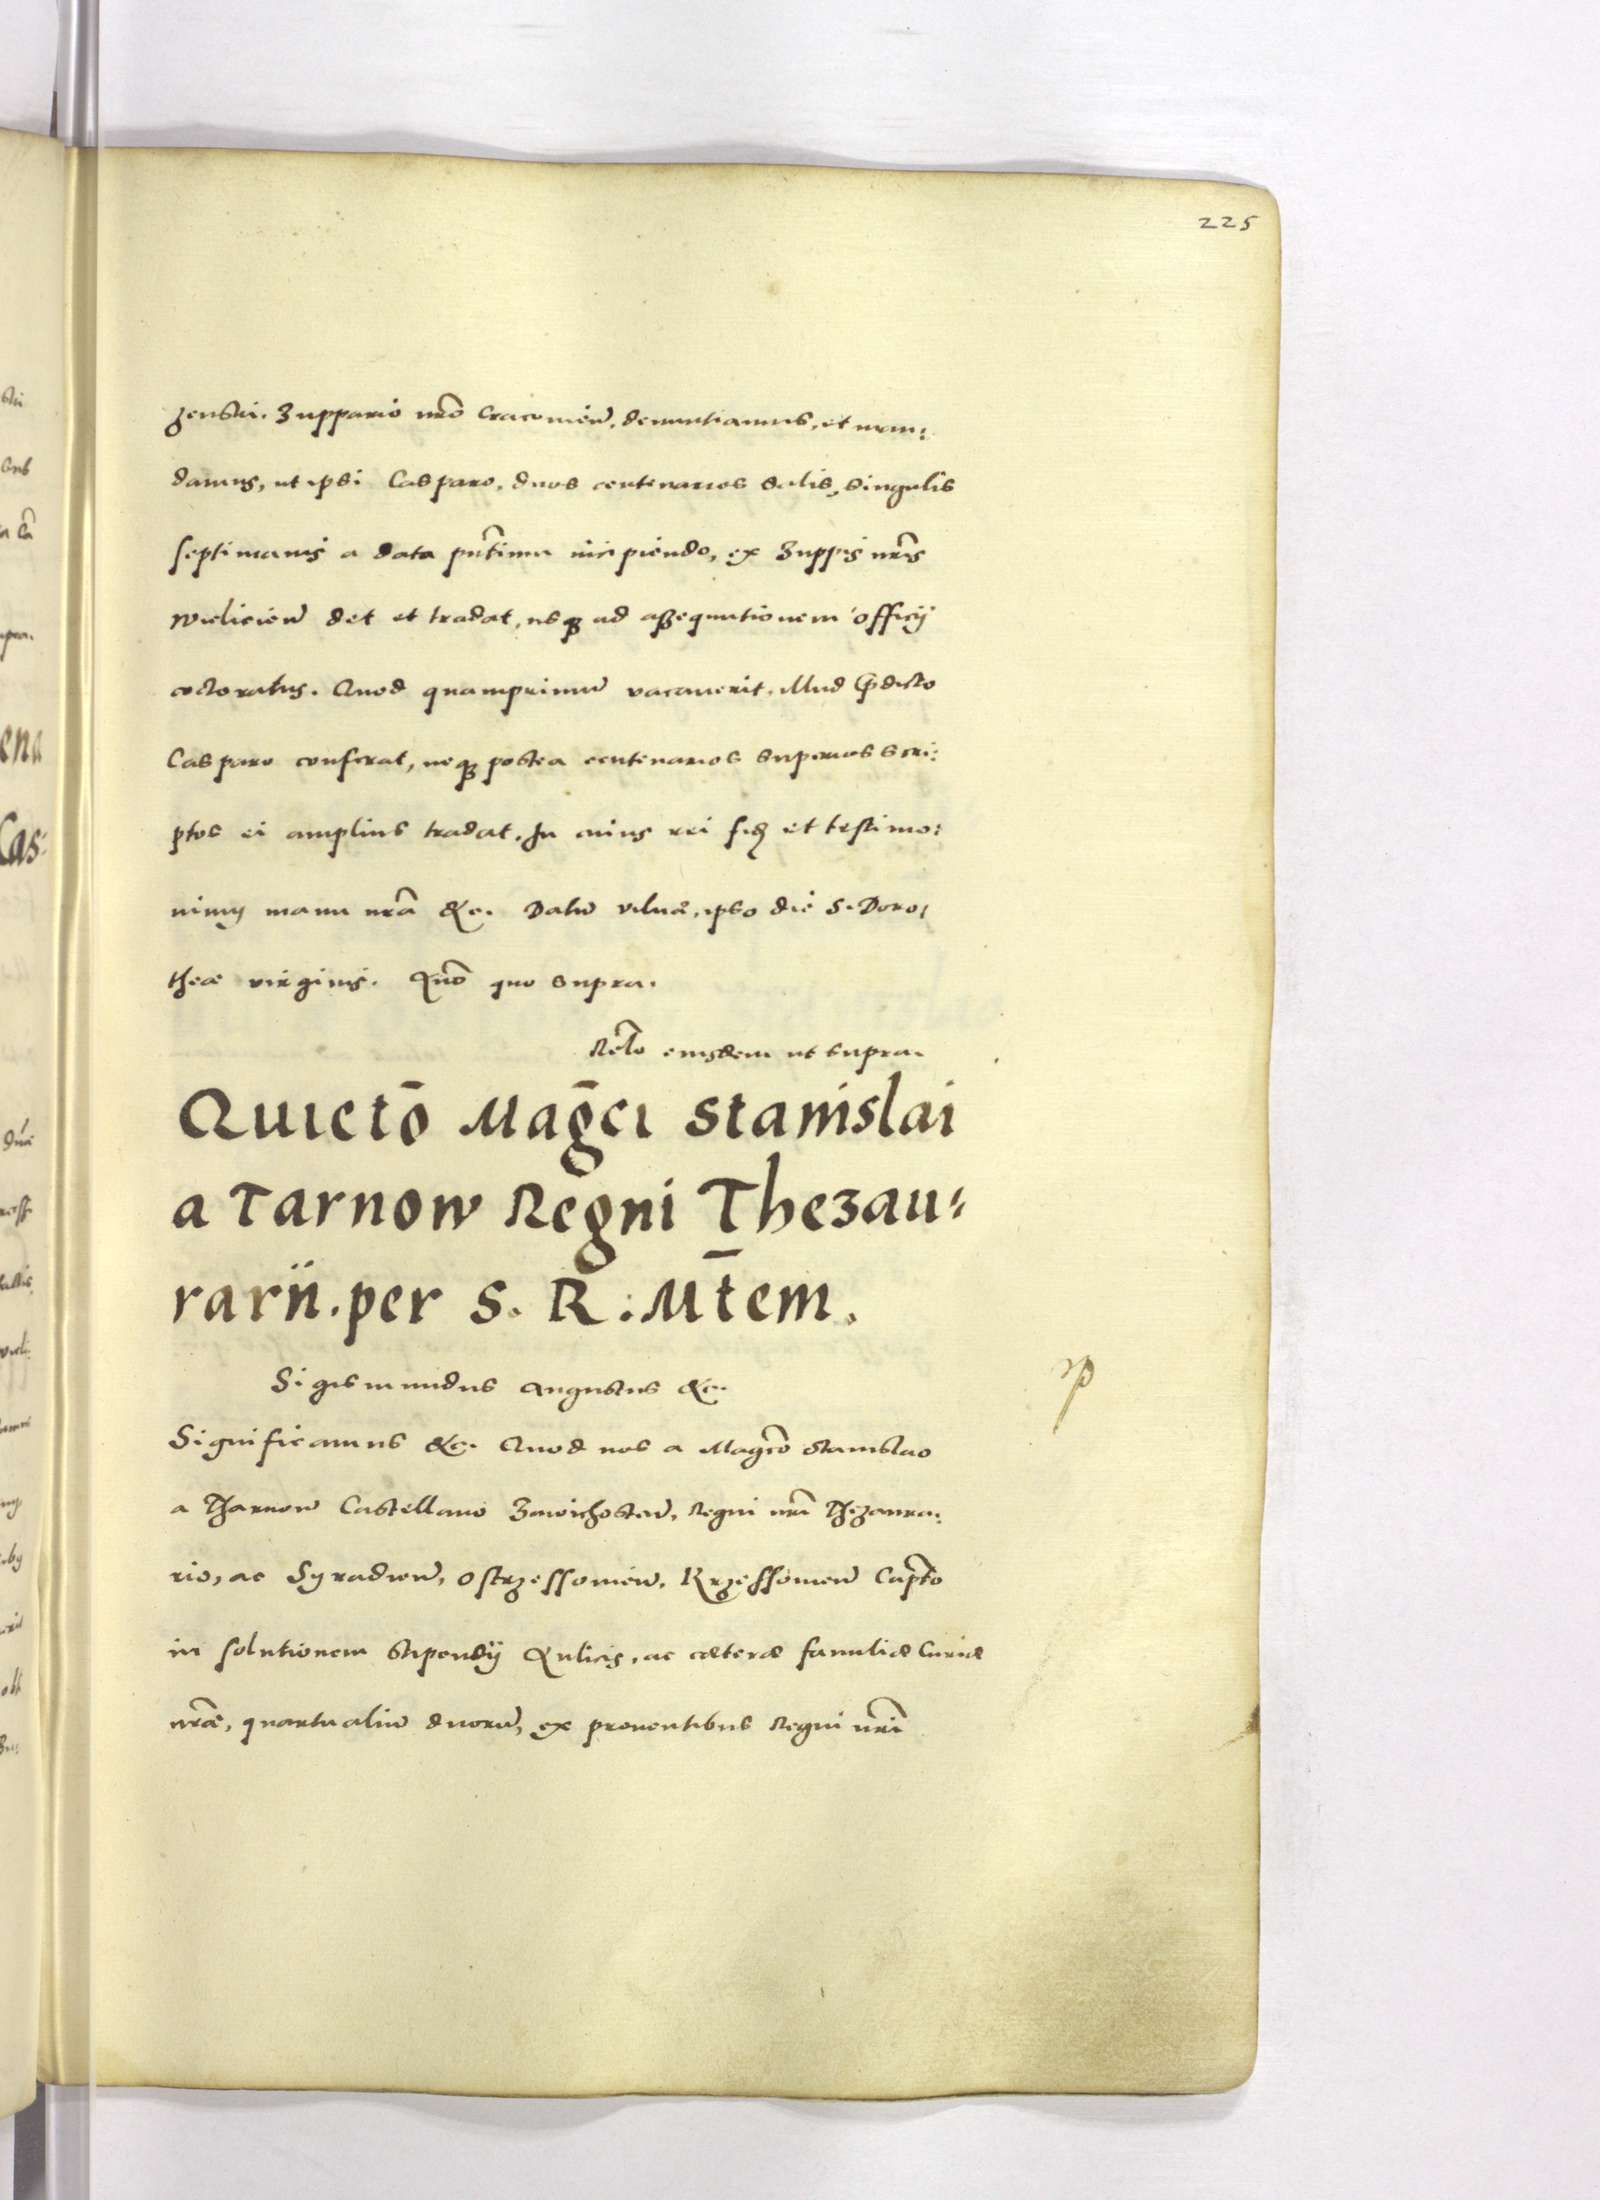 225
zenski. Zuppario nr̃o Cracovieñ, denuntiamus, et man:
damus, ut ipsi Casparo, duos centenarios salis, singulis
septimanis a data pñtium incipiendo, ex Zuppis nr̃is
Wielicieñ det et tradat, usq̃ ad assequutionem officij
coctoratus. Quod quamprimũ vacaverit, illud p̃dicto
Casparo conferat, neq̃ postea centenarios superius scri:
ptos ei amplius tradat. In cuius rei fidẽ et testimo:
nium manu nr̃a &c. Datũ Vilnæ, ipso die S. Doro/
theæ virginis. Anõ quo supra.
Relõ eiusdem ut supra.
Quietõ Mag̃ci Stanislai
a Tarnow Regni Thezau:
rarii. per S. R. M̃tem.
Sigismundus Augustus &c.
Significamus &c. Quod nos a Mag̃co Stanislao
a Tharnow Castellano Zawichosteñ, Regni nr̃i Thezaura:
rio, ac Syradieñ, Ostrzessovieñ, Krzessovieñ Cap̃to
in solutionem stipendij Aulicis, ac cæteræ familiæ Curiæ
nr̃æ, quartualiũ duorũ, ex proventibus Regni nr̃i